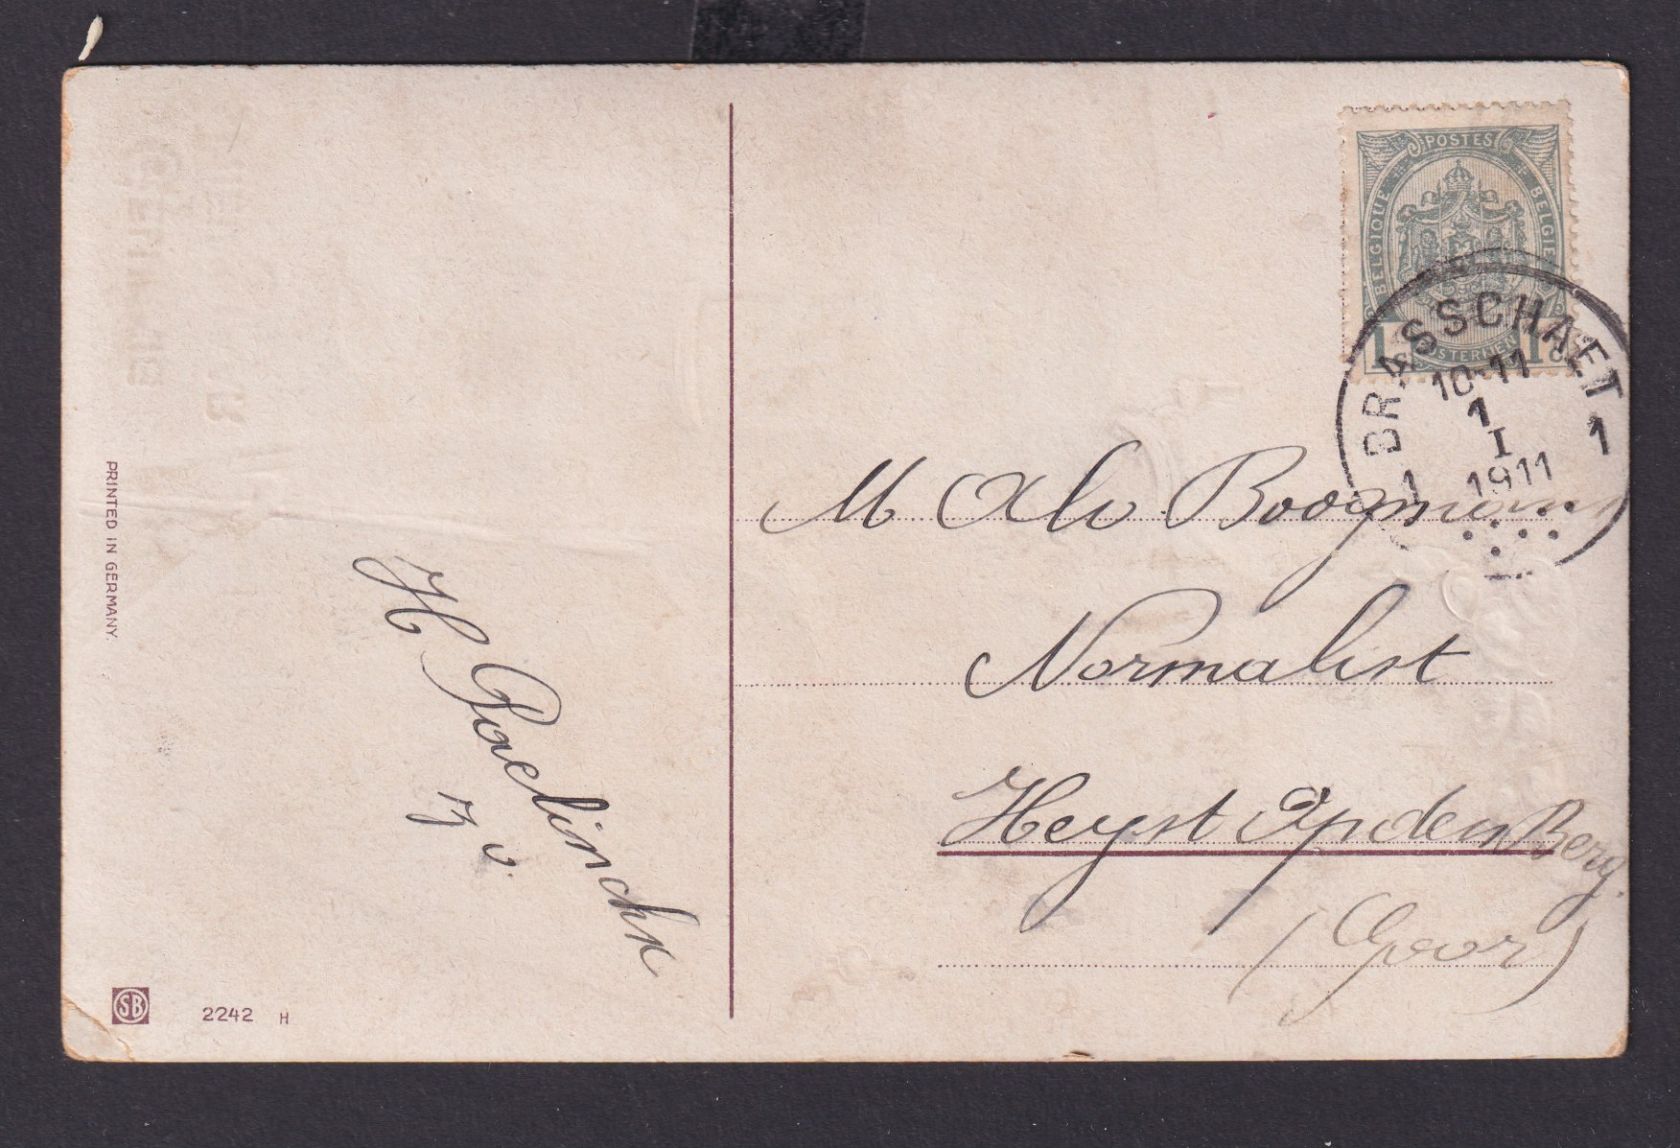 PRINTED IN GERMANY.
SB
2242 H
H Poelinckx
POSTES
BELGIQUE BELGIE
1 1
BRASSCHAET
10-11
1
I
1911
1 1
M Alw Boogmans
Normalist
Heyst Op den Berg.
(Goor)